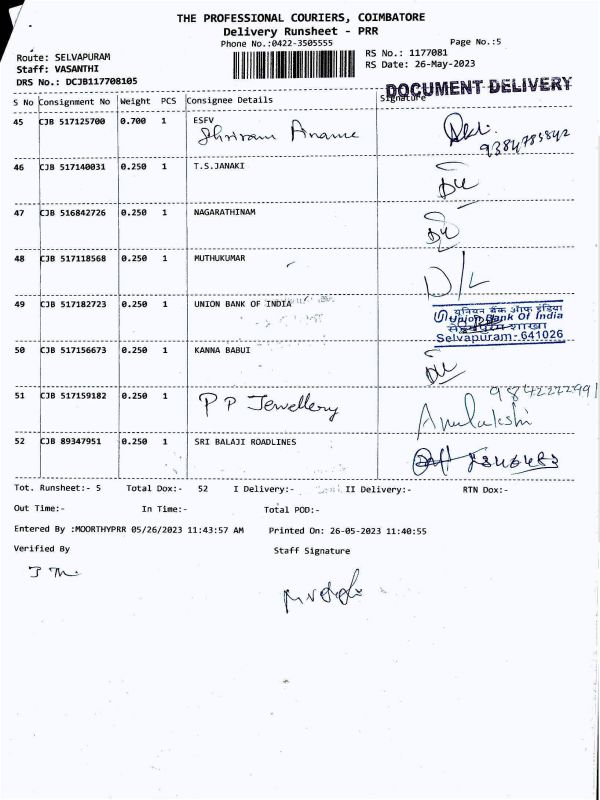 THE PROFESSIONAL COURIERS, COIMBATORE
Delivery Runsheet - PRR
Phone No.:0422-3505555 Page No.:5
Route: SELVAPURAM RS No.: 1177081
Staff: VASANTHI RS Date: 26-May-2023
DRS No.: DCJB117708105
DOCUMENT DELIVERY
S No Consignment No Weight PCS Consignee Details Signature
45 CJB 517125700 0.700 1 ESFV
Shriram
9384785842
46 CJB 517140031 0.250 1 T.S.JANAKI
47 CJB 516842726 0.250 1 NAGARATHINAM
48 CJB 517118568 0.250 1 MUTHUKUMAR
D/L
49 CJB 517182723 0.250 1 UNION BANK OF INDIA
यूनियन बैंक ऑफ इंडिया
Union Bank Of India
शाखा
Selvapuram-641026
50 CJB 517156673 0.250 1 KANNA BABUI
51 CJB 517159182 0.250 1 P P Jewellery 9842222991
52 CJB 89347951 0.250 1 SRI BALAJI ROADLINES
Tot. Runsheet:- 5 Total Dox:- 52 I Delivery:- II Delivery:- RTN Dox:-
Out Time:- In Time:- Total POD:-
Entered By :MOORTHYPRR 05/26/2023 11:43:57 AM Printed On: 26-05-2023 11:40:55
Verified By Staff Signature